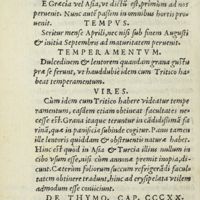 E Græcia vel Asia, ve dictũ est, primùm ad nos
peruenit. Nunc autẽ passim in omnibus hortis proue
uenit. TEMPVS.
Seritur mense Aprili, nec nisi sub finem Augusti
& initia Septembris ad maturitatem peruenit.
TEMPERAMENTVM.
Dulcedinem & lentorem quandam grana gustu
præ se ferunt, ve haud dubiè idem cum Tritico ha
beat temperamentum.
VIRES.
Cùm idem cum Tritico habere videatur tempe
ramentum, easdem etiam obtinuerit facultates neces
esse est. Grana itaque teruntur in candidissimã fa
rinã, quæ in panificijs subinde coquitur. Panis tamen
ille lentoris quiddam & obstruentis naturæ habet.
Hinc est quòd in Asia & Turcia illius nullum in
cibo vsum esse, nisi cùm annonæ premit inopia, di
cunt. Cæterùm foliorum succum refrigerãdi facul
tatem obtinere tradunt, hinc ad erysipelata vtilem
admodum esse conijciunt.
DE THYMO. CAP. CCCXX.